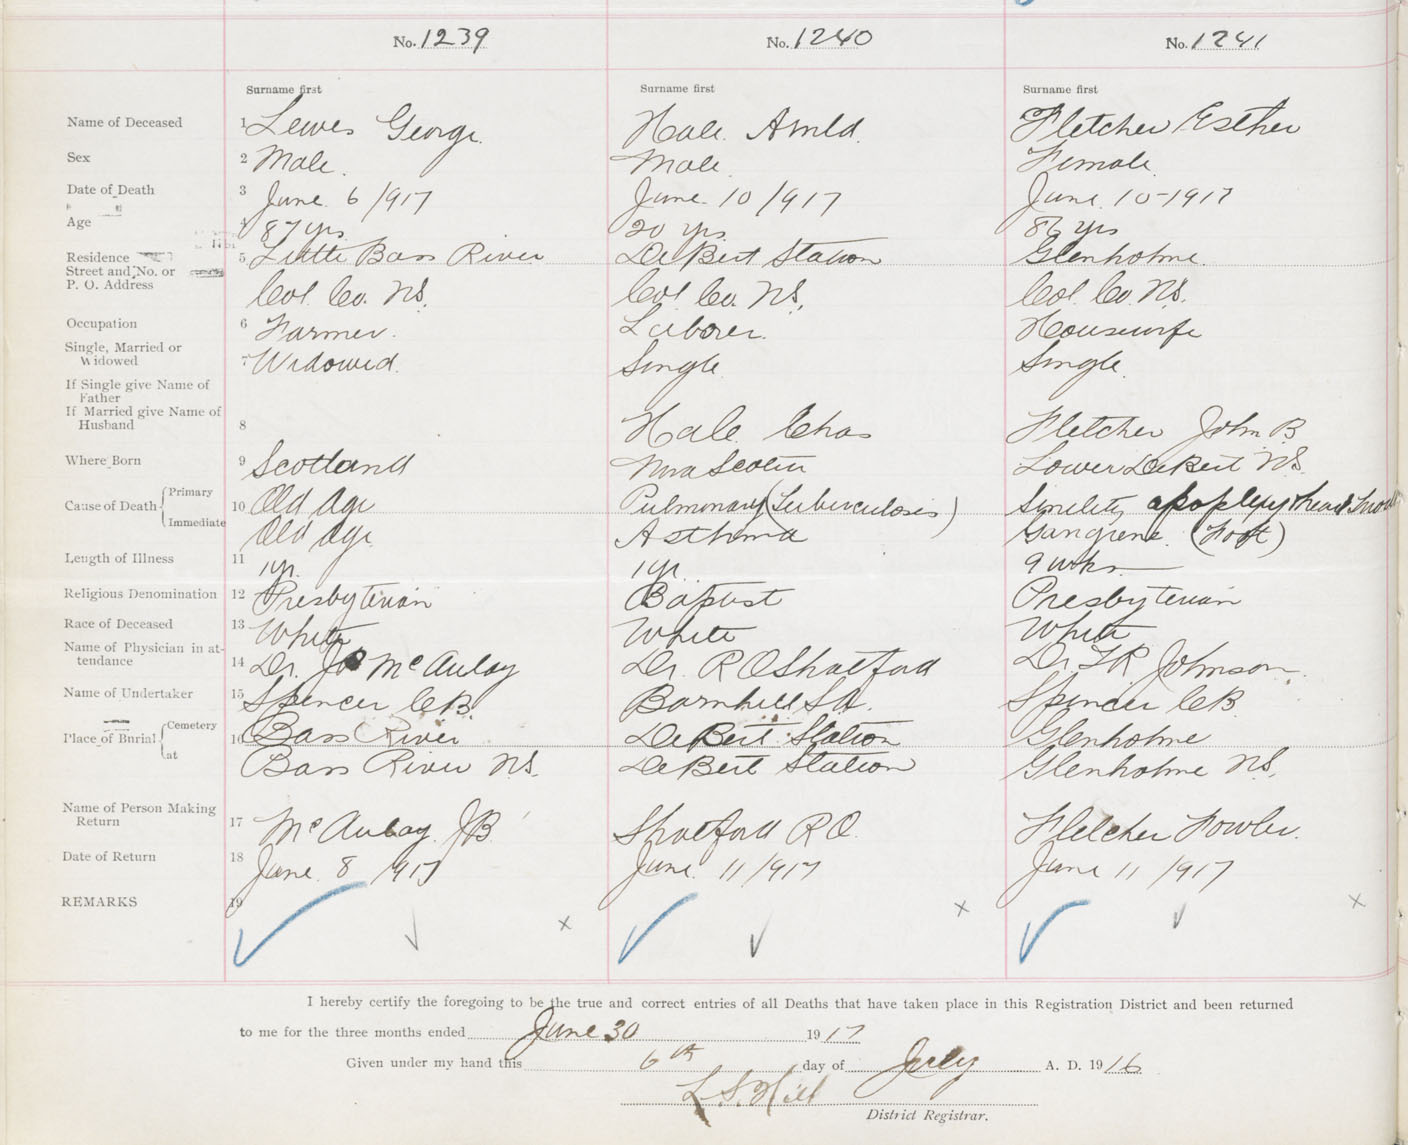 No. 1239 No. 1240 No. 1241
Surname first Surname first Surname first
Name of Deceased 1 Lewes George Hale Arnld. Fletcher Esther
Sex 2 Male. Male Female.
Date of Death 3 June 6/917 June 10/917 June 10-1917
Age 4 87 yrs 20 yrs 86 yrs
Residence 5 Little Bass River DeBert Station Glenholme.
Street and No. or
P. O. Address Col. Co. N.S. Col Co. N.S. Col. Co. N.S.
Occupation 6 Farmer. Laborer. Housewife
Single, Married or
Widowed 7 Widowed. Single Single.
If Single give Name of
Father
If Married give Name of
Husband 8 Hale Chas Fletcher John B
Where Born 9 Scotland Nova Scotia Lower DeBert N.S.
Cause of Death Primary 10 Old Age Pulmonary (Tuberculosis) Senility apoplexy
Immediate Old Age. Asthma Gangrene. (Foot)
Length of Illness 11 1 yr. 1 yr. 9 wks.
Religious Denomination 12 Presbyterian Baptist Presbyterian
Race of Deceased 13 White White White
Name of Physician in at-
tendance 14 Dr. McAulay Dr. R O Shatford Dr. T R Johnson.
Name of Undertaker 15 Spencer C B. Barnhill S A. Spencer C B.
Place of Burial Cemetery 16 Bass River DeBert Station Glenholme
at Bass River N.S. DeBert Station Glenholme N.S.
Name of Person Making
Return 17 McAulay J B. Shatford R O. Fletcher Fowler.
Date of Return 18 June 8/917 June 11/917 June 11/917
REMARKS 19 x x x
I hereby certify the foregoing to be the true and correct entries of all Deaths that have taken place in this Registration District and been returned
to me for the three months ended June 30 1917
Given under my hand this 6th day of July A. D. 1916
L. S. Hill
District Registrar.